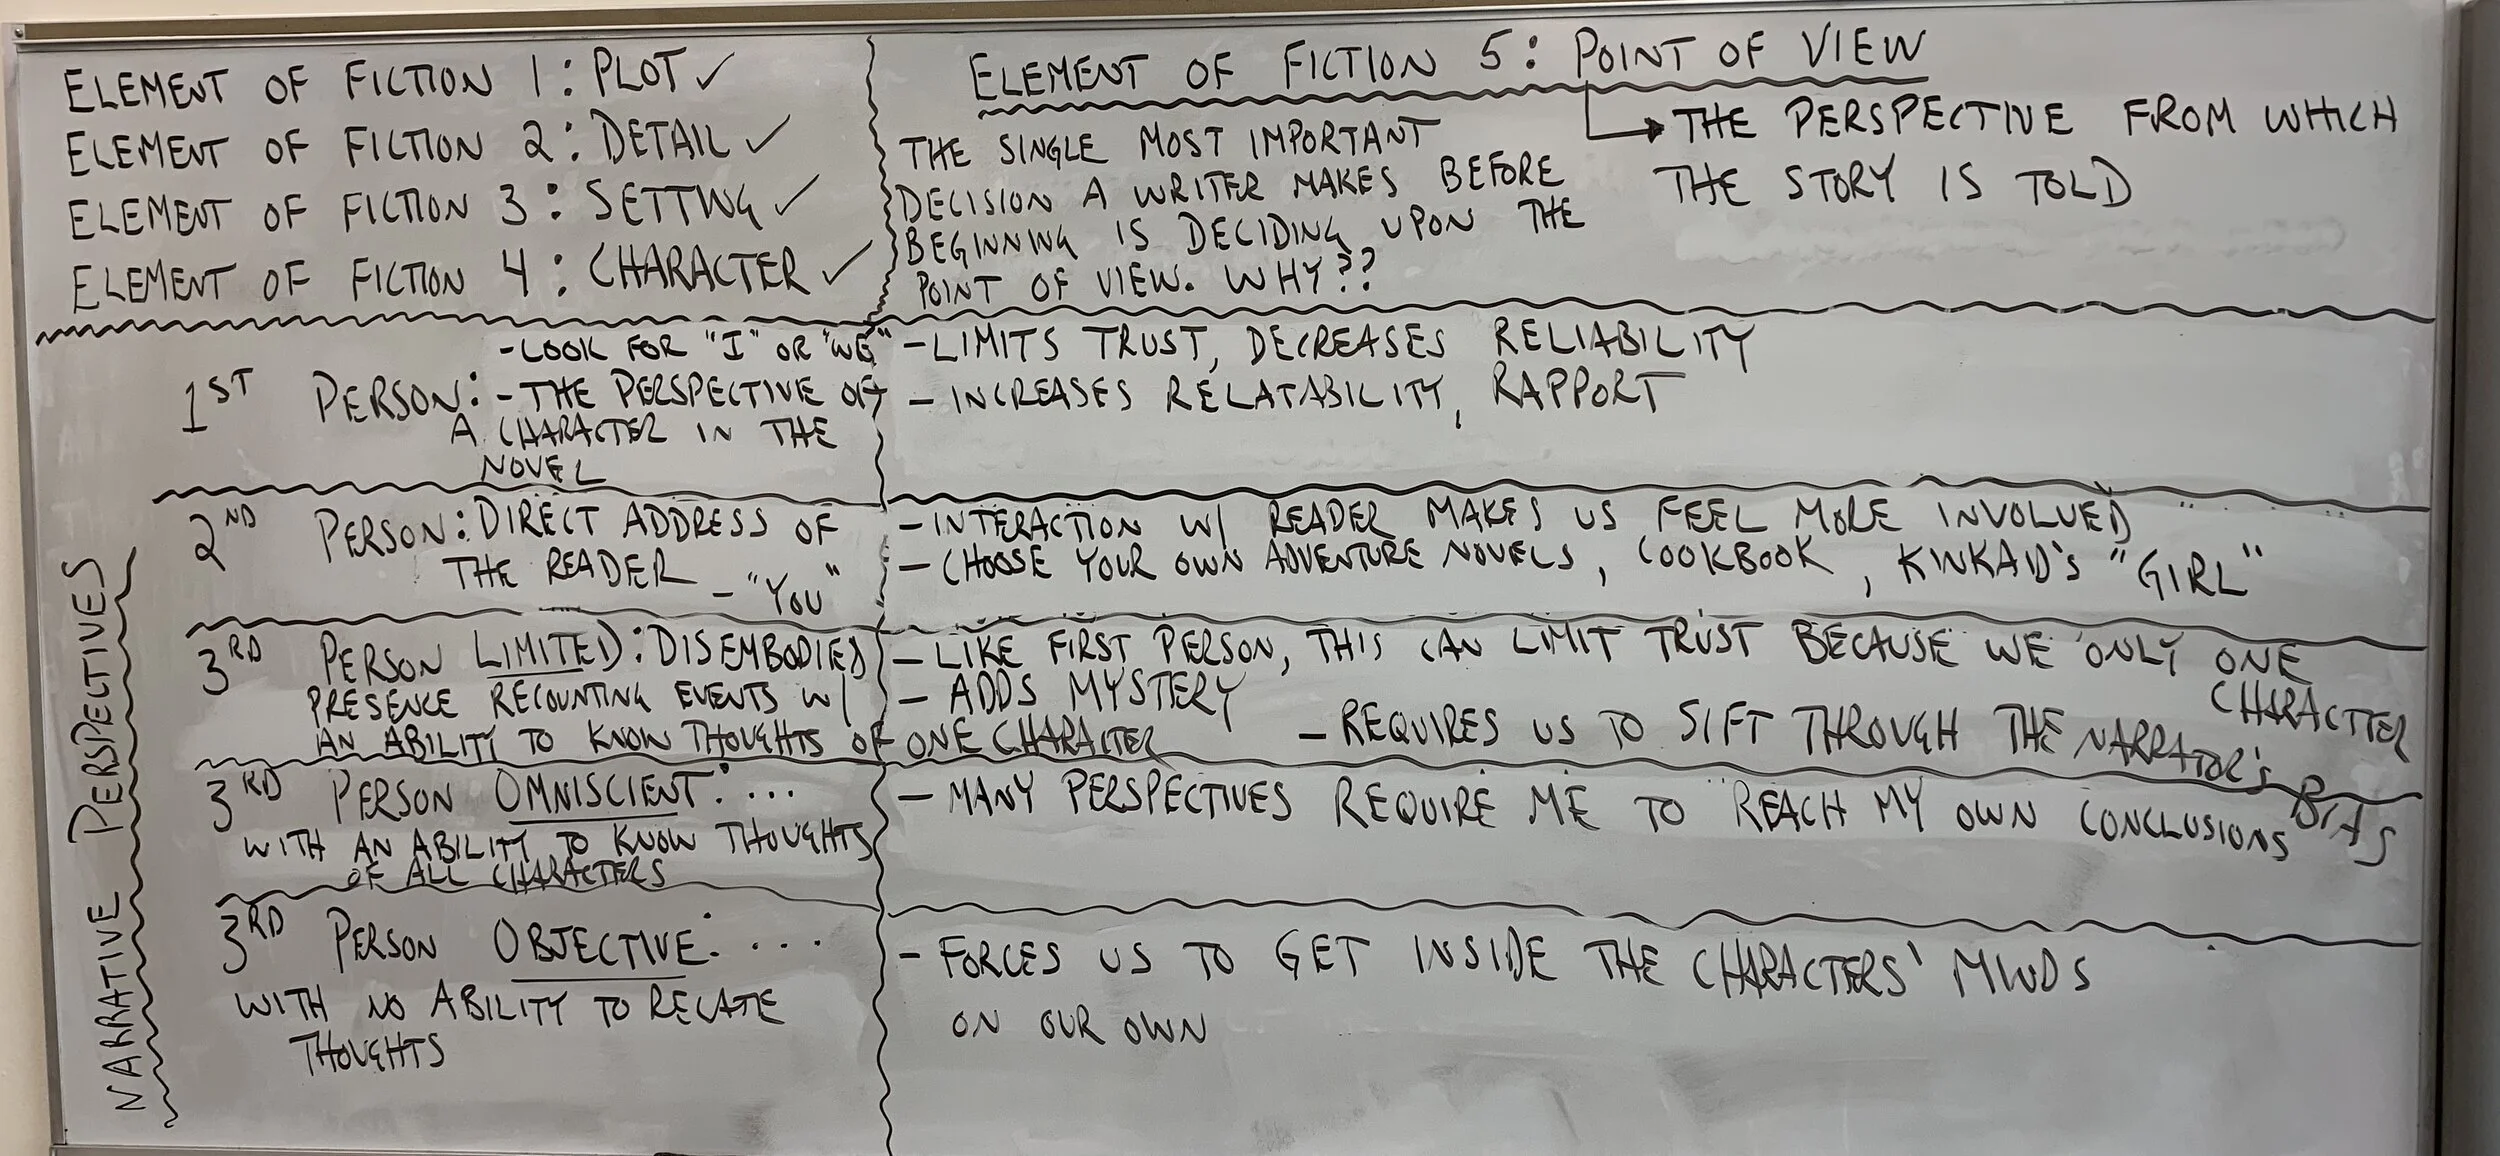 ELEMENT OF FICTION 1: PLOT ✓
ELEMENT OF FICTION 2: DETAIL ✓
ELEMENT OF FICTION 3: SETTING ✓
ELEMENT OF FICTION 4: CHARACTER ✓
ELEMENT OF FICTION 5: POINT OF VIEW
→ THE PERSPECTIVE FROM WHICH
THE STORY IS TOLD
THE SINGLE MOST IMPORTANT
DECISION A WRITER MAKES BEFORE
BEGINNING IS DECIDING UPON THE
POINT OF VIEW. WHY??
NARRATIVE PERSPECTIVES
1ST PERSON: - LOOK FOR "I" OR "WE"
- THE PERSPECTIVE OF
A CHARACTER IN THE
NOVEL
- LIMITS TRUST, DECREASES RELIABILITY
- INCREASES RELATABILITY, RAPPORT
2ND PERSON: DIRECT ADDRESS OF
THE READER - "YOU"
- INTERACTION W/ READER MAKES US FEEL MORE INVOLVED
- CHOOSE YOUR OWN ADVENTURE NOVELS, COOKBOOK, KINKAID'S "GIRL"
3RD PERSON LIMITED: DISEMBODIED
PRESENCE RECOUNTING EVENTS W/
AN ABILITY TO KNOW THOUGHTS OF ONE CHARACTER
- LIKE FIRST PERSON, THIS CAN LIMIT TRUST BECAUSE WE ONLY ONE
CHARACTER
- ADDS MYSTERY
- REQUIRES US TO SIFT THROUGH THE NARRATOR'S BIAS
3RD PERSON OMNISCIENT: ...
WITH AN ABILITY TO KNOW THOUGHTS
OF ALL CHARACTERS
- MANY PERSPECTIVES REQUIRE ME TO REACH MY OWN CONCLUSIONS
3RD PERSON OBJECTIVE: ...
WITH NO ABILITY TO RELATE
THOUGHTS
- FORCES US TO GET INSIDE THE CHARACTERS' MINDS
ON OUR OWN